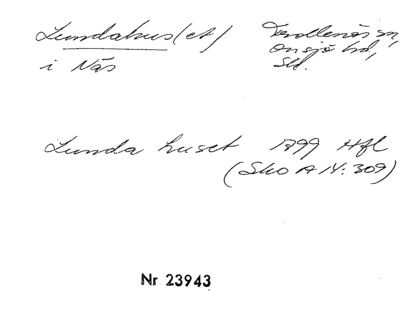 Lundahus(et) Trollenäs sn,
i Näs Onsjö hd,
Sk.
Lunda huset 1899 Hfl
(Sko A IV:309)
Nr 23943